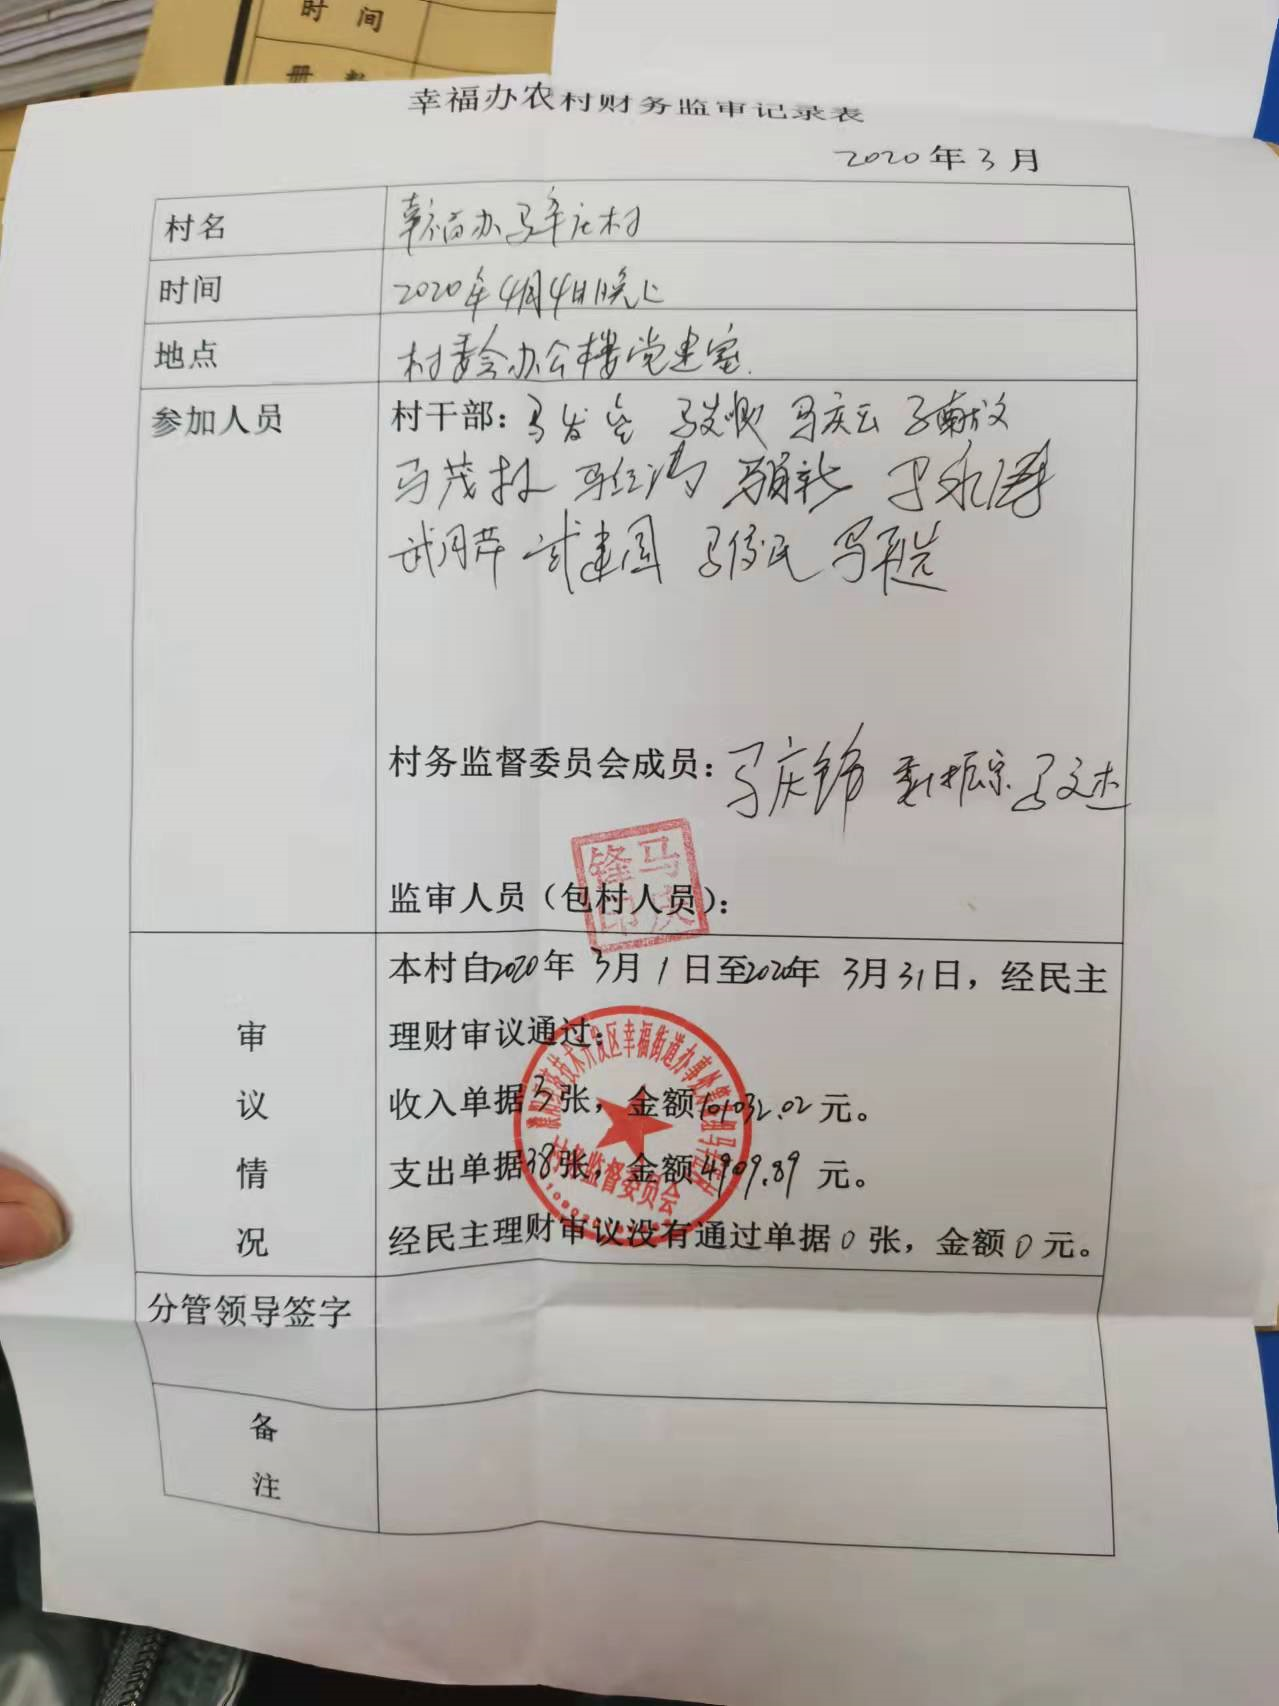 时 间
册 数
幸福办农村财务监审记录表
2020年3月
村名
幸福办马辛庄村
时间
2020年4月4日晚上
地点
村委会办公楼党建室
参加人员
村干部: 马庆云 马献文
马茂林
武月萍 武建国 马俊民
村务监督委员会成员: 马庆锋 马文杰
锋马
印庆
监审人员(包村人员):
审议情况
本村自2020年 3月 1 日至2020年 3月31日,经民主
理财审议通过:
收入单据3张,金额101032.02元。
支出单据38张,金额4909.89 元。
经民主理财审议没有通过单据0张,金额0元。
村务监督委员会
分管领导签字
备注